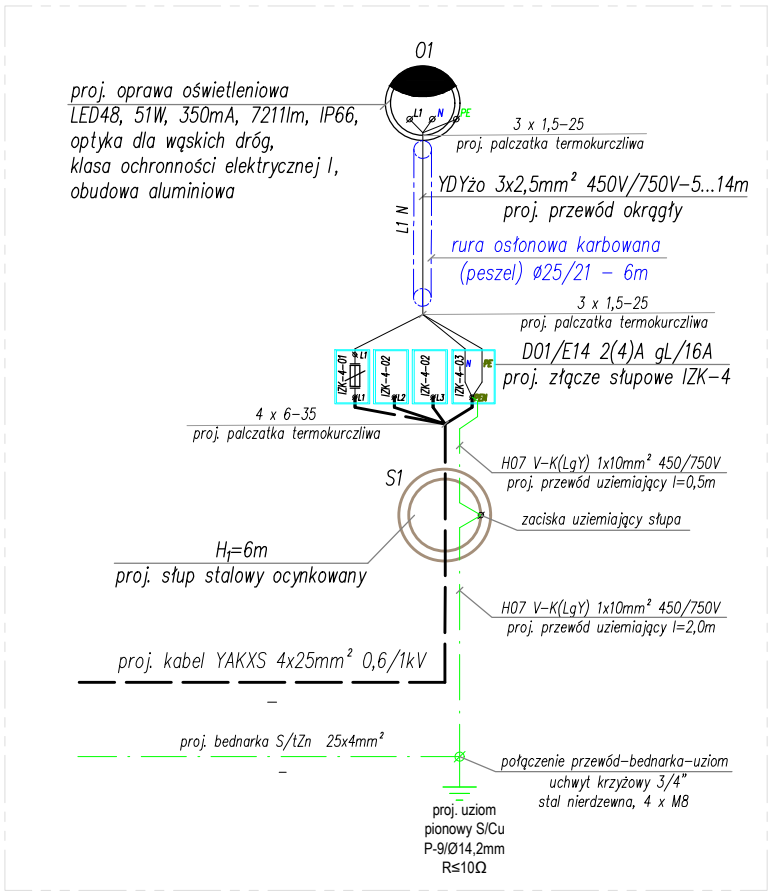 O1
proj. oprawa oświetleniowa
LED48, 51W, 350mA, 7211lm, IP66,
optyka dla wąskich dróg,
klasa ochronności elektrycznej I,
obudowa aluminiowa
L1 N PE
3 x 1,5-25
proj. palczatka termokurczliwa
YDYżo 3x2,5mm² 450V/750V-5...14m
proj. przewód okrągły
L1 N
rura osłonowa karbowana
(peszel) Ø25/21 - 6m
3 x 1,5-25
proj. palczatka termokurczliwa
D01/E14 2(4)A gL/16A
proj. złącze słupowe IZK-4
IZK-4-01 L1 L1
IZK-4-02 L2
IZK-4-02 L3
IZK-4-03 N PE PEN
4 x 6-35
proj. palczatka termokurczliwa
H07 V-K(LgY) 1x10mm² 450/750V
proj. przewód uziemiający l=0,5m
S1
zaciska uziemiający słupa
H1=6m
proj. słup stalowy ocynkowany
H07 V-K(LgY) 1x10mm² 450/750V
proj. przewód uziemiający l=2,0m
proj. kabel YAKXS 4x25mm² 0,6/1kV
–
proj. bednarka S/tZn 25x4mm²
–
połączenie przewód-bednarka-uziom
uchwyt krzyżowy 3/4"
stal nierdzewna, 4 x M8
proj. uziom
pionowy S/Cu
P-9/Ø14,2mm
R≤10Ω